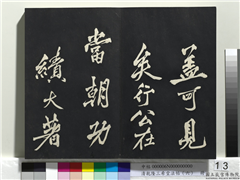 蓋可見
矣行公在
當朝功
績大著
13